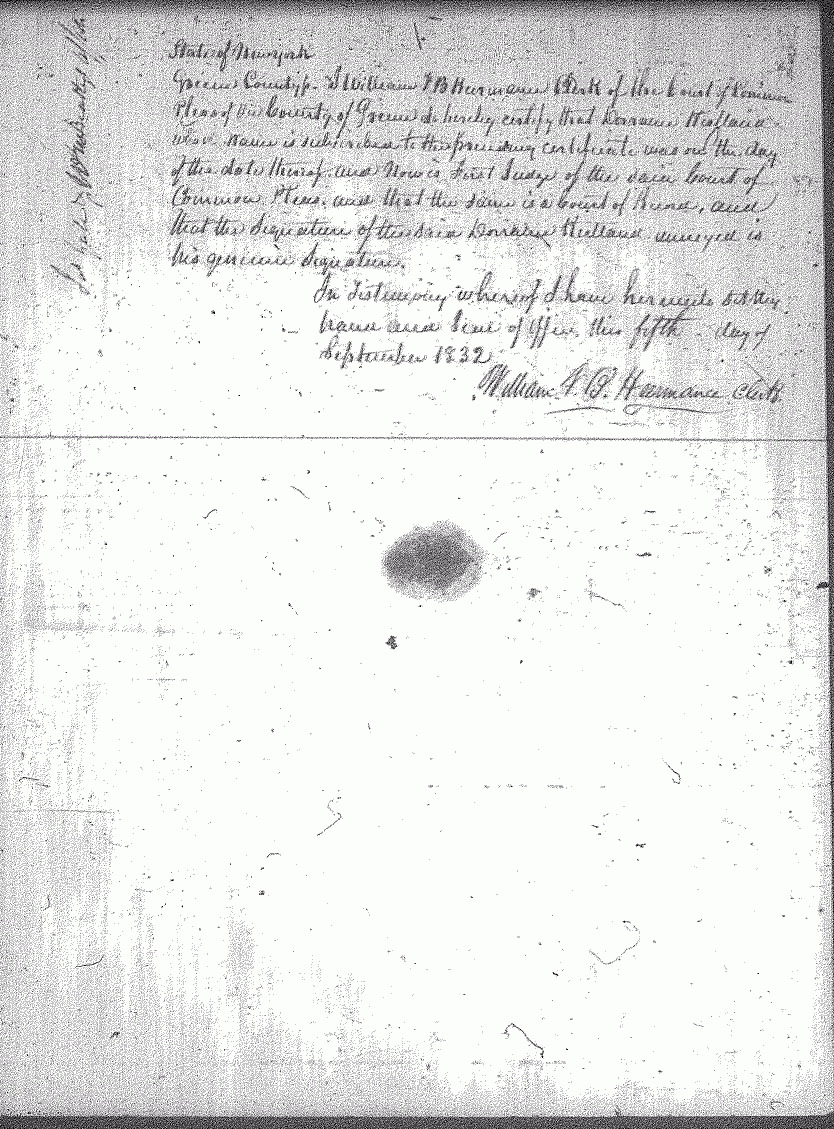 State of New york
Greene County ss. I William V B Heermance Clerk of the Court of Common
Pleas of the County of Greene do hereby certify that Dorrance Kirtland
whose name is subscribed to the preceding certificate was on the day
of the date thereof, and Now is First Judge of the said Court of
Common Pleas, and that the same is a Court of Record, and
that the Signature of the said Dorrance Kirtland annexed is
his genuine Signature.
In Testimony whereof I have hereunto set my
hand and Seal of Office this fifth day of
September 1832
William V. B. Heermance Clerk